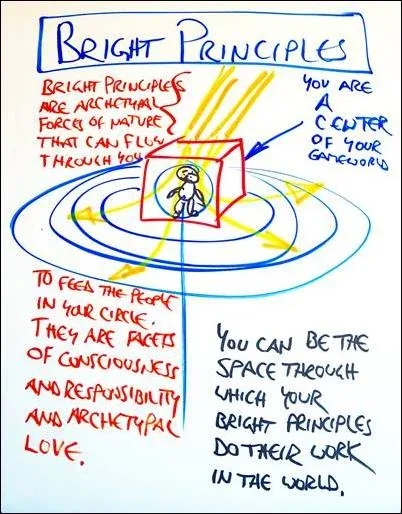 BRIGHT PRINCIPLES
BRIGHT PRINCIPLES
ARE ARCHETYPAL
FORCES OF NATURE
THAT CAN FLOW
THROUGH YOU
YOU ARE
A
CENTER
OF YOUR
GAMEWORLD
TO FEED THE PEOPLE
IN YOUR CIRCLE.
THEY ARE FACETS
OF CONSCIOUSNESS
AND RESPONSIBILITY
AND ARCHETYPAL
LOVE.
YOU CAN BE THE
SPACE THROUGH
WHICH YOUR
BRIGHT PRINCIPLES
DO THEIR WORK
IN THE WORLD.